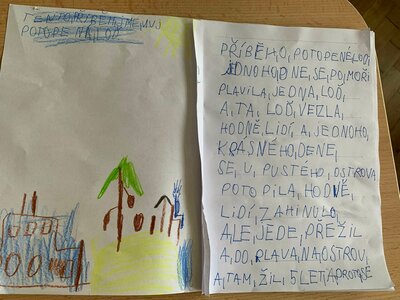 TENTO, PŘÍBĚH, JE, MUJ
POTOPENÁ LOĎ
PŘÍBĚH, O, POTOPENÉ, LODI
JEDNOHO, DNE, SE, PO, MOŘI
PLAVILA, JEDNA, LOĎ,
A, TA, LOĎ, VEZLA,
HODNĚ, LIDÍ, A, JEDNOHO,
KRÁSNÉHO, DENE,
SE, U, PUSTÉHO, OSTROVA
POTOPILA, HODNĚ,
LIDÍ, ZAHINULO,
ALE, JEDE, PŘEŽIL
A, DO, PLAVAL NA OSTROV,
A, TAM, ŽIL, 5 LET A PROTOŽE